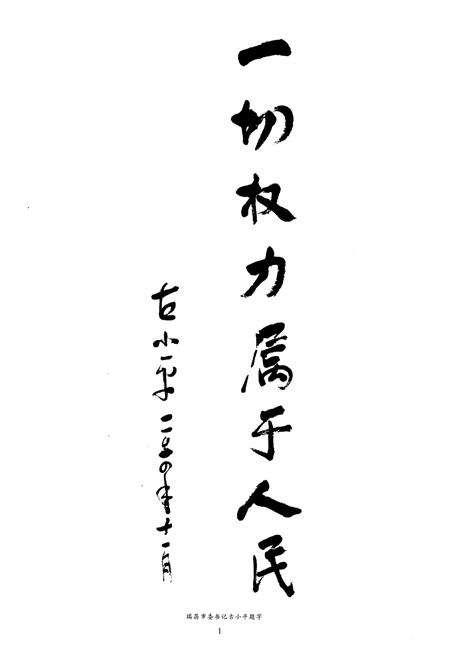 一切权力属于人民
古小平 二〇〇四年十一月
瑞昌市委书记古小平题字
1